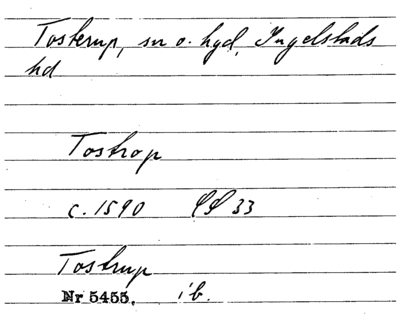 Tosterup, sn o. hgd, Ingelstads
hd
Tostrop
c. 1590 33
Tostrup
Nr 5455. ib.